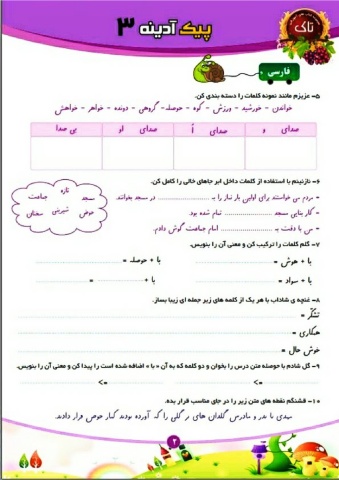 پیک آدینه ۳
تاک
فارسی
۵- عزیزم مانند نمونه کلمات را دسته بندی کن.
خواندن - خورشید - ورزش - کوه - حوصله - گروهی - دونده - خواهر - خواهش
صدای و
صدای اُ
صدای او
بی صدا
۶- نازنینم با استفاده از کلمات داخل ابر جاهای خالی را کامل کن.
تازه
مسجد جماعت
حوض شیرینی سخنان
- مردم می خواستند برای اولین بار نماز را به ........................ در مسجد بخوانند.
- کار بنایی مسجد ........................ تمام شده بود.
- من با دقت به ........................ امام جماعت گوش دادم.
۷- گلم کلمات را ترکیب کن و معنی آن را بنویس.
با + هوش = با + حوصله =
با + سواد = با + ........ =
۸- غنچه ی شاداب با هر یک از کلمه های زیر جمله ای زیبا بساز.
تشکّر =
همکاری =
خوش حال =
۹- گل شادم با حوصله متن درس را بخوان و دو کلمه که به آن « با » اضافه شده است را پیدا کن و معنی آن را بنویس.
<= <=
۱۰- قشنگم نقطه های متن زیر را در جای مناسب قرار بده.
۲